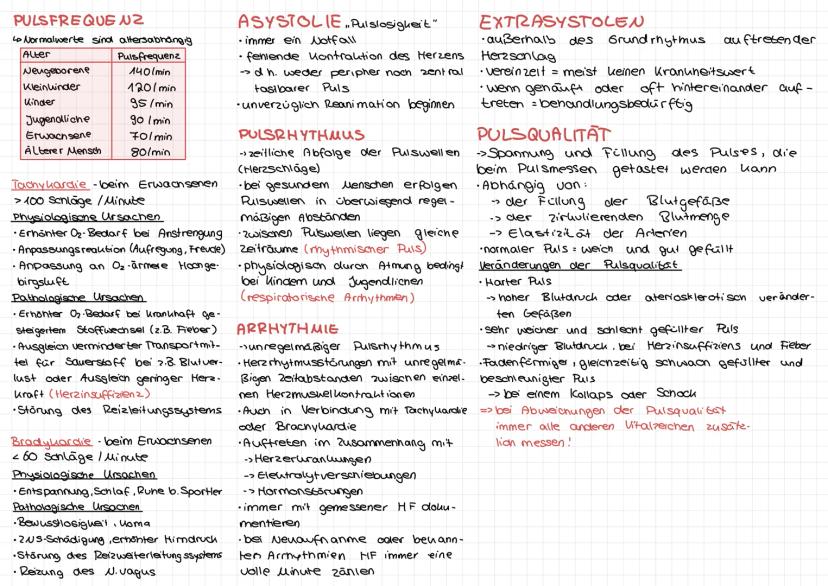 PULSFREQUENZ
↳ Normalwerte sind altersabhängig
Alter Pulsfrequenz
Neugeborene 140/min
Kleinkinder 120/min
Kinder 95/min
Jugendliche 90/min
Erwachsene 70/min
Älterer Mensch 80/min
Tachykardie - beim Erwachsenen
> 100 Schläge / Minute
Physiologische Ursachen
• Erhöhter O₂-Bedarf bei Anstrengung
• Anpassungsreaktion (Aufregung, Freude)
• Anpassung an O₂-ärmere Hochge-
birgsluft
Pathologische Ursachen
• Erhöhter O₂-Bedarf bei krankhaft ge-
steigertem Stoffwechsel (z.B. Fieber)
• Ausgleich verminderter Transportmit-
tel für Sauerstoff bei z.B. Blutver-
lust oder Ausgleich geringer Herz-
kraft (Herzinsuffizienz)
• Störung des Reizleitungssystems
Bradykardie - beim Erwachsenen
< 60 Schläge / Minute
Physiologische Ursachen
• Entspannung, Schlaf, Ruhe b. Sportler
Pathologische Ursachen
• Bewusstlosigkeit, Koma
• ZNS-Schädigung, erhöhter Hirndruck
• Störung des Reizweiterleitungssystems
• Reizung des N. vagus
ASYSTOLIE „Pulslosigkeit"
• immer ein Notfall
• fehlende Kontraktion des Herzens
-> d.h. weder peripher noch zentral
tastbarer Puls
• unverzüglich Reanimation beginnen
PULSRHYTHMUS
-> zeitliche Abfolge der Pulswellen
(Herzschläge)
• bei gesundem Menschen erfolgen
Pulswellen in überwiegend regel-
mäßigen Abständen
• zwischen Pulswellen liegen gleiche
Zeiträume (rhythmischer Puls)
• physiologisch durch Atmung bedingt
bei Kindern und Jugendlichen
(respiratorische Arrhythmien)
ARRHYTHMIE
-> unregelmäßiger Pulsrhythmus
• Herzrhythmusstörungen mit unregelmä-
ßigen Zeitabständen zwischen einzel-
nen Herzmuskelkontraktionen
• Auch in Verbindung mit Tachykardie
oder Brachykardie
• Auftreten im Zusammenhang mit
-> Herzerkrankungen
-> Elektrolytverschiebungen
-> Hormonstörungen
• immer mit gemessener HF doku-
mentieren
• bei Neuaufnahme oder bekann-
ten Arrhythmien HF immer eine
volle Minute zählen
EXTRASYSTOLEN
• außerhalb des Grundrhythmus auftretender
Herzschlag
• vereinzelt = meist keinen Krankheitswert
• wenn gehäuft oder oft hintereinander auf-
treten = behandlungsbedürftig
PULSQUALITÄT
-> Spannung und Füllung des Pulses, die
beim Pulsmessen getastet werden kann
• Abhängig von:
-> der Füllung der Blutgefäße
-> der zirkulierenden Blutmenge
-> Elastizität der Arterien
• normaler Puls = weich und gut gefüllt
Veränderungen der Pulsqualität
• Harter Puls
-> hoher Blutdruck oder aterioskleotisch veränder-
ten Gefäßen
• sehr weicher und schlecht gefüllter Puls
-> niedriger Blutdruck, bei Herzinsuffiziens und Fieber
• Fadenförmiger, gleichzeitig schwach gefüllter und
beschleunigter Puls
-> bei einem Kollaps oder Schock
=> bei Abweichungen der Pulsqualität
immer alle anderen Vitalzeichen zusätz-
lich messen!